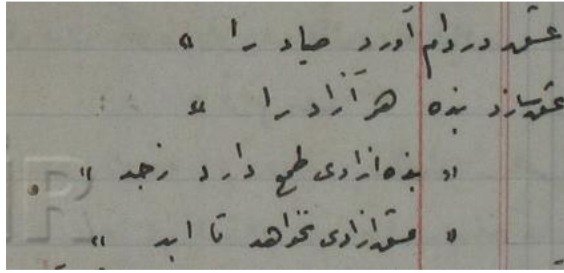 عشق در دام آورد صیاد را "
عشق سازد بنده هر آزاد را "
" بنده آزادی طمع دارد ز جد "
" عشق آزادی نخواهد تا ابد "